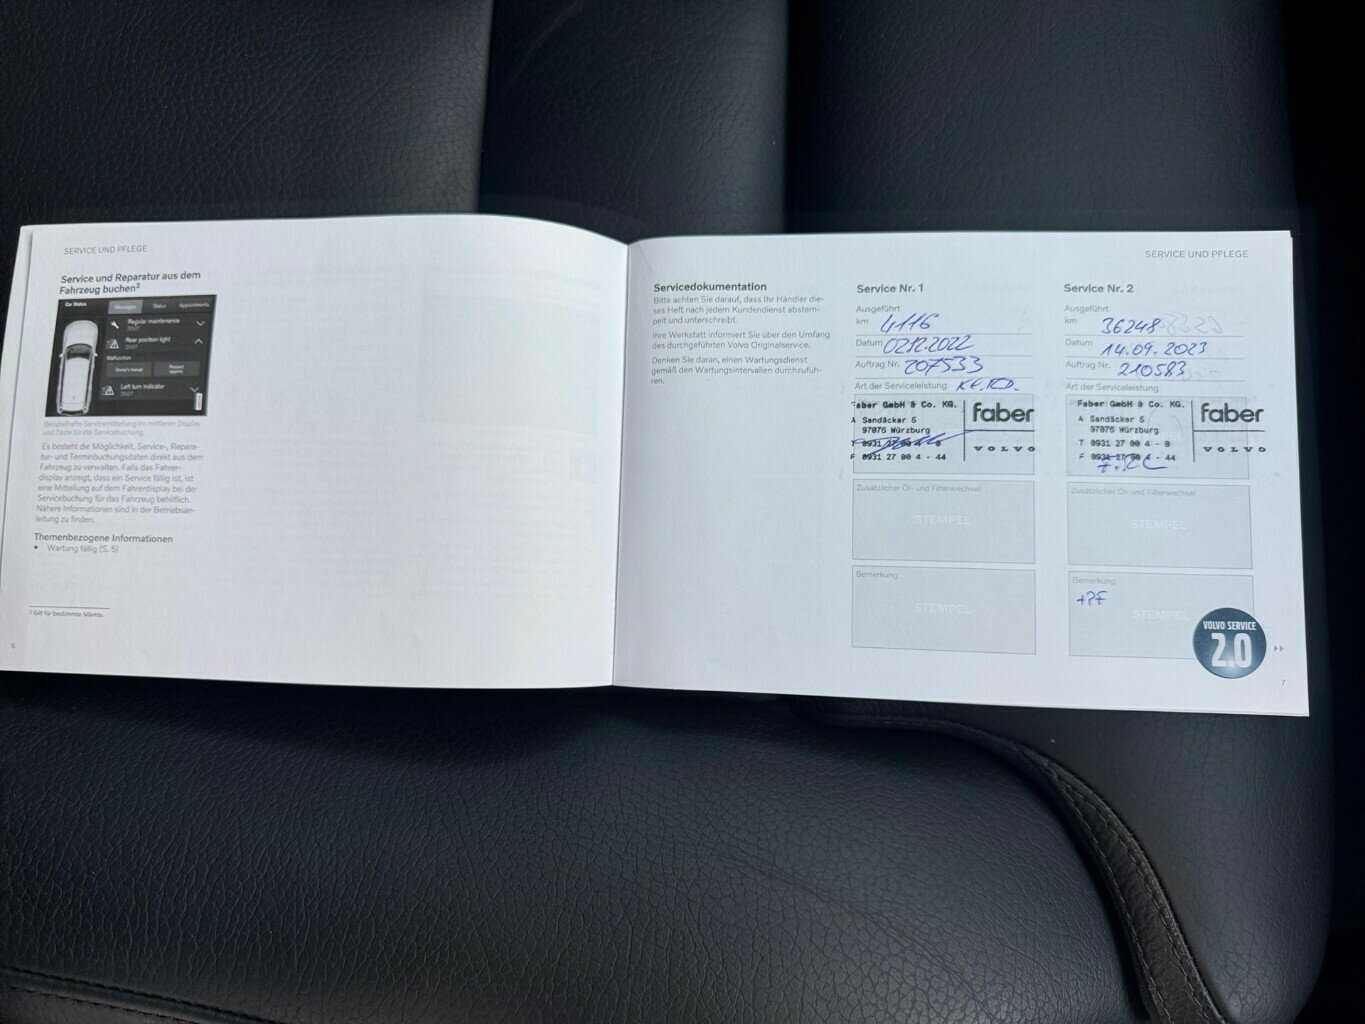 SERVICE UND PFLEGE
Service und Reparatur aus dem
Fahrzeug buchen²
Car Status
Messages
Status
Appointments
Regular maintenance
Rear position light
Malfunction
Left turn indicator
Beispielhafte Servicemitteilung im mittleren Display
und Taste für die Servicebuchung.
Es besteht die Möglichkeit, Service-, Repara-
tur- und Terminbuchungsdaten direkt aus dem
Fahrzeug zu verwalten. Falls das Fahrer-
display anzeigt, dass ein Service fällig ist, ist
eine Mitteilung auf dem Fahrerdisplay bei der
Servicebuchung für das Fahrzeug behilflich.
Nähere Informationen sind in der Betriebsan-
leitung zu finden.
Themenbezogene Informationen
• Wartung fällig (S. 5)
² Gilt für bestimmte Märkte.
6
SERVICE UND PFLEGE
Servicedokumentation
Bitte achten Sie darauf, dass Ihr Händler die-
ses Heft nach jedem Kundendienst abstem-
pelt und unterschreibt.
Ihre Werkstatt informiert Sie über den Umfang
des durchgeführten Volvo Originalservice.
Denken Sie daran, einen Wartungsdienst
gemäß den Wartungsintervallen durchzufüh-
ren.
Service Nr. 1
Ausgeführt:
km 4116
Datum 02.12.2022
Auftrag Nr. 207533
Art der Serviceleistung
Faber GmbH & Co. KG.
A Sandäcker 5
97076 Würzburg
T 0931 27 00 4 - 0
F 0931 27 00 4 - 44
faber
VOLVO
Zusätzlicher Öl- und Filterwechsel
STEMPEL
Bemerkung
STEMPEL
Service Nr. 2
Ausgeführt:
km 36248
Datum 14.09.2023
Auftrag Nr. 210583
Art der Serviceleistung
Faber GmbH & Co. KG.
A Sandäcker 5
97076 Würzburg
T 0931 27 00 4 - 0
F 0931 27 00 4 - 44
faber
VOLVO
Zusätzlicher Öl- und Filterwechsel
STEMPEL
Bemerkung
STEMPEL
VOLVO SERVICE
2.0
7